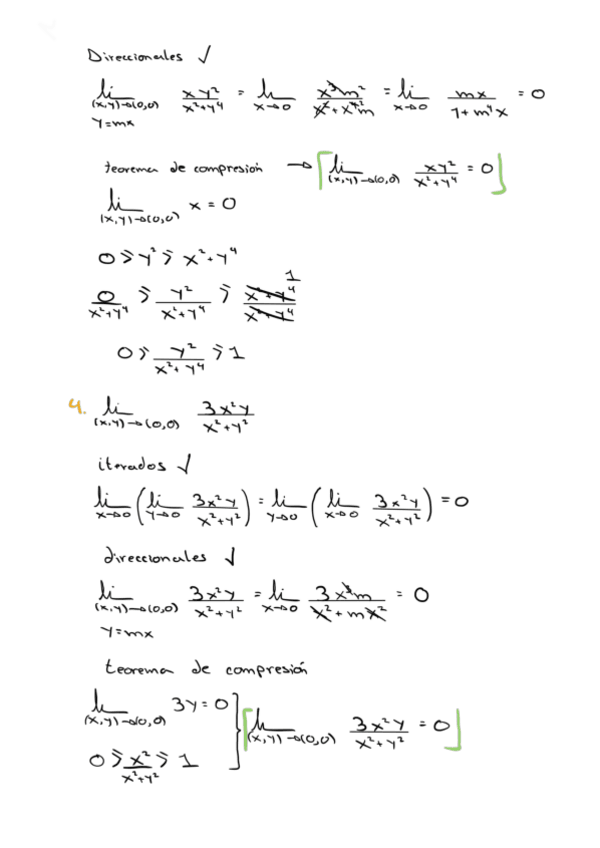 Direccionales √
lim (x,y)→(0,0) y=mx xy²/x²+y⁴ = lim x→0 x³m²/x²+x⁴m = lim x→0 mx/1+m⁴x = 0
teorema de compresión → [lim (x,y)→(0,0) xy²/x²+y⁴ = 0]
lim (x,y)→(0,0) x = 0
0 ⩾ y² ⩾ x²+y⁴
0/x²+y⁴ ⩾ y²/x²+y⁴ ⩾ x²+y⁴/x²+y⁴ 1
0 ⩾ y²/x²+y⁴ ⩾ 1
4. lim (x,y)→(0,0) 3x²y/x²+y²
iterados √
lim x→0 (lim y→0 3x²y/x²+y²) = lim y→0 (lim x→0 3x²y/x²+y²) = 0
direccionales √
lim (x,y)→(0,0) y=mx 3x²y/x²+y² = lim x→0 3x³m/x²+mx² = 0
teorema de compresión
lim (x,y)→(0,0) 3y = 0
0 ⩾ x²/x²+y² ⩾ 1
} [lim (x,y)→(0,0) 3x²y/x²+y² = 0]